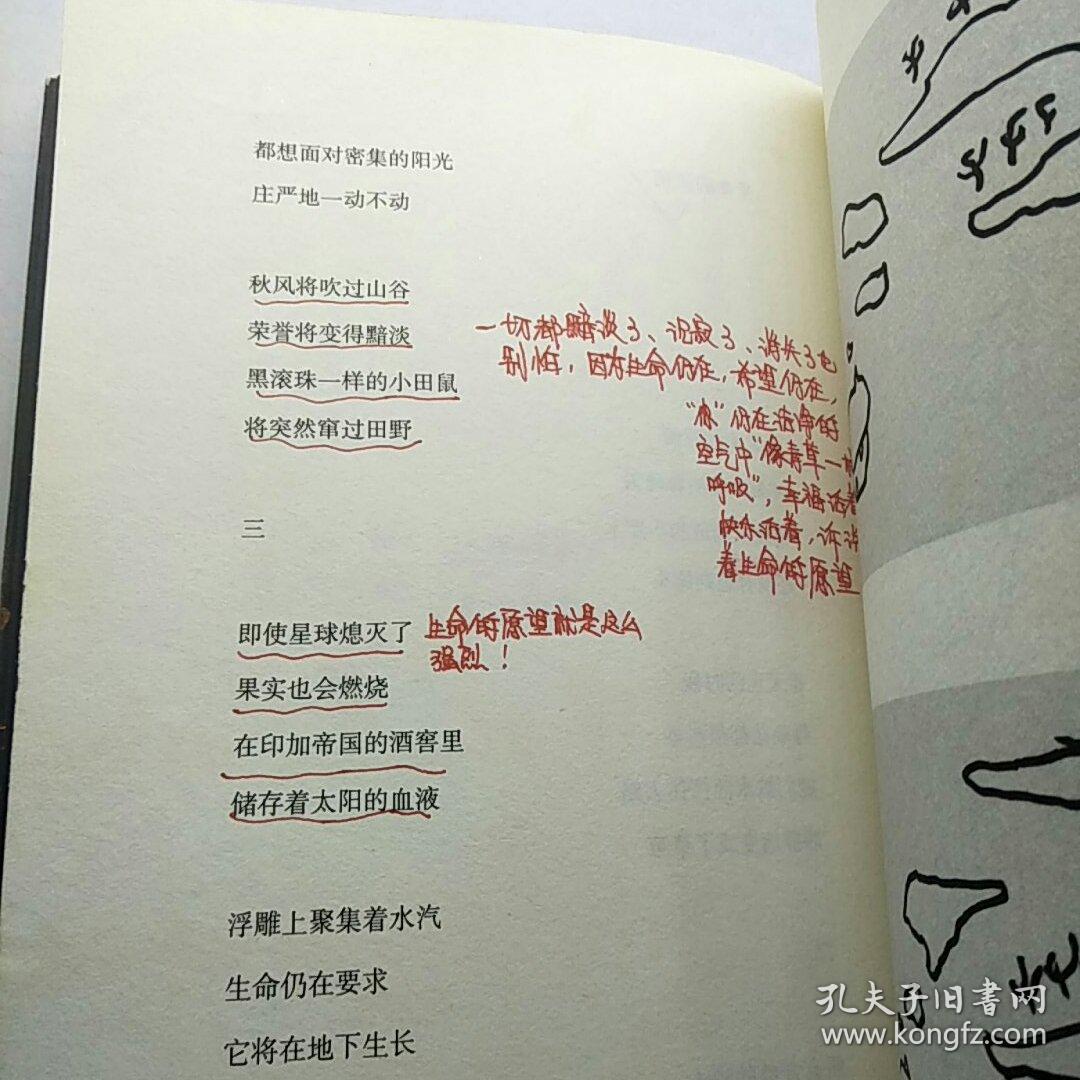 都想面对密集的阳光
庄严地一动不动
秋风将吹过山谷
荣誉将变得黯淡
黑滚珠一样的小田鼠
将突然窜过田野
一切都黯淡了、沉寂了、消失了也
别怕，因为生命仍在，希望仍在，
"你"仍在洁净的
空气中"像青草一样
呼吸"，幸福活着
快乐活着，诉说
着生命的愿望
三
即使星球熄灭了
生命的愿望就是这么
强烈！
果实也会燃烧
在印加帝国的酒窖里
储存着太阳的血液
浮雕上聚集着水汽
生命仍在要求
它将在地下生长
孔夫子旧书网
www.kongfz.com